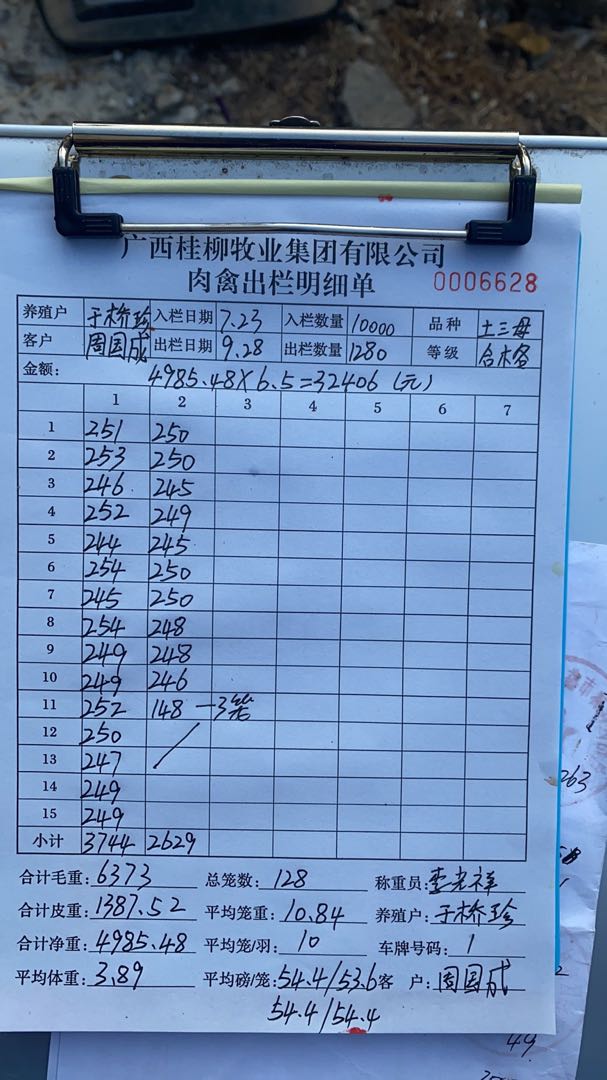 广西桂柳牧业集团有限公司
肉禽出栏明细单 0006628
养殖户 于桥珍 入栏日期 7.23 入栏数量 10000 品种 土三母
客户 周国成 出栏日期 9.28 出栏数量 1280 等级 合格
金额: 4985.48×6.5=32406(元)
1 2 3 4 5 6 7
1 251 250
2 253 250
3 246 245
4 252 249
5 244 245
6 254 250
7 245 250
8 254 248
9 249 248
10 249 246
11 252 148 —3笼
12 250
13 247
14 249
15 249
小计 3744 2629
合计毛重: 6373 总笼数: 128 称重员: 李光祥
合计皮重: 1387.52 平均笼重: 10.84 养殖户: 于桥珍
合计净重: 4985.48 平均笼/羽: 10 车牌号码: 1
平均体重: 3.89 平均磅/笼: 54.4/53.6 客 户: 周国成
54.4/54.4
263
49